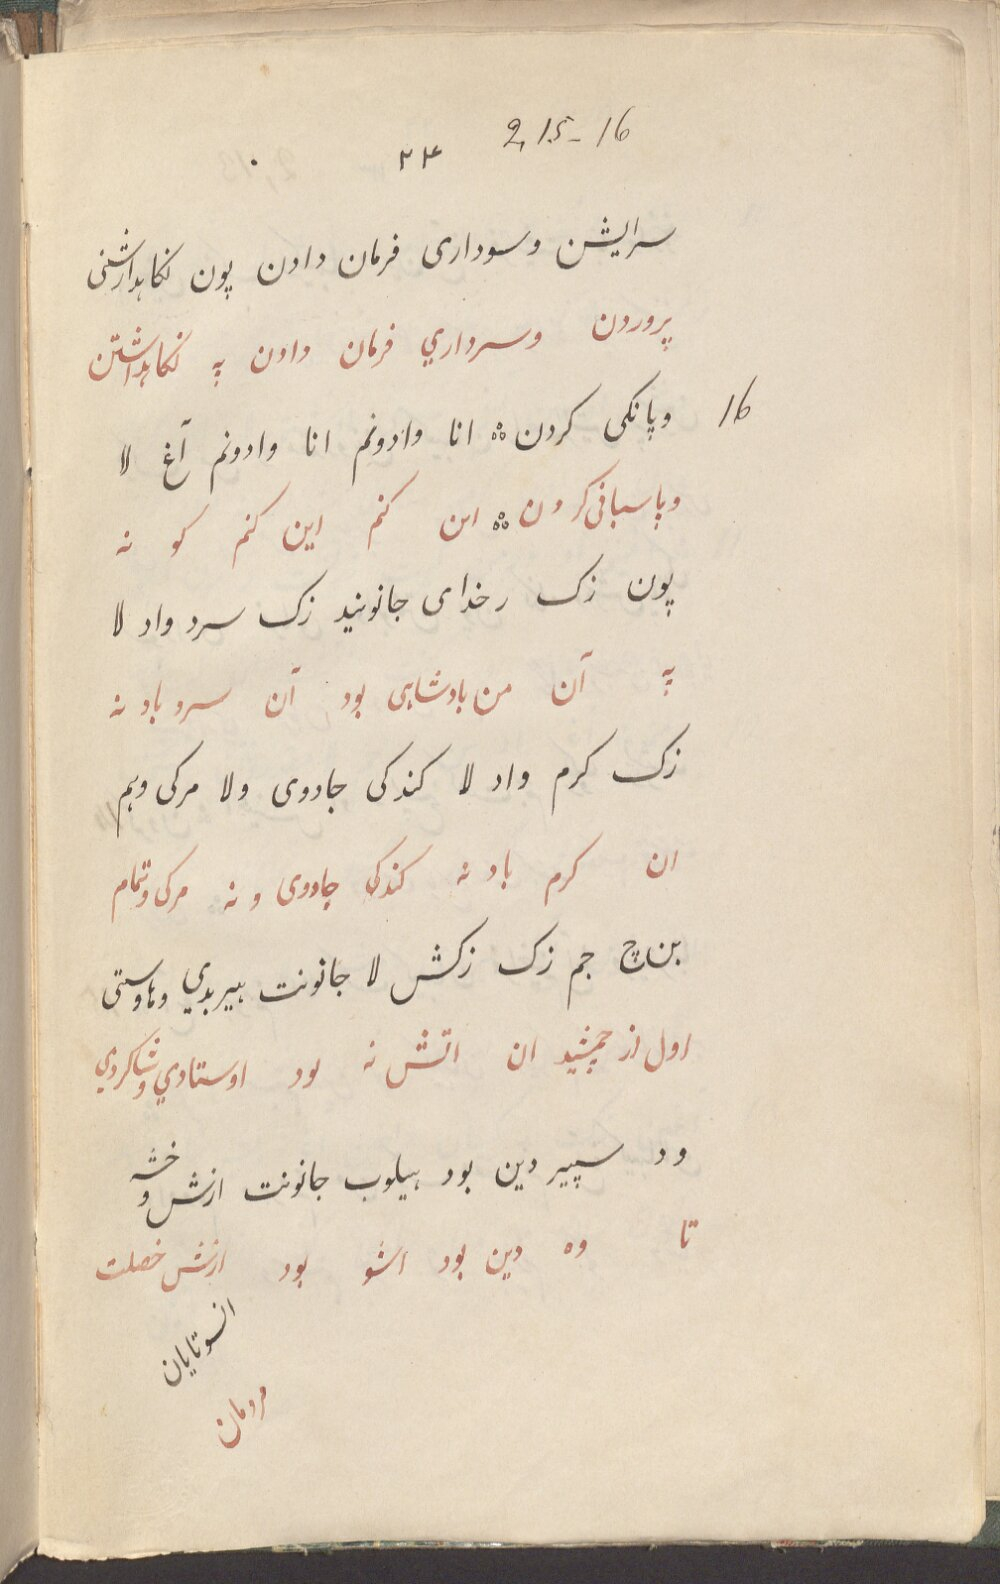 2, 15-16
۳۴
سرایشن وسوداری فرمان دادن پون نکاهدارشنی
پروردن وسرداري فرمان دادن په نکاهداشتن
16
وپانکی کردن ؞ انا وادونم انا وادونم آغ لا
وپاسبانی کردن ؞ این کنم این کنم کو نه
پون زک رخدای جانونید زک سرد واد لا
په آن من بادشاهی بود آن سرد باد نه
زک کرم واد لا کندکی جادوی ولا مرکی وهم
ان کرم باد نه کندکی جادوی و نه مرکی وتمام
بن چ جم زک زکش لا جانونت هیربدي وهاوستی
اول از جمشید ان اتش نه بود اوستادي وشاکردي
ود سپیر دین بود هیلوب جانونت ازش وخشه
تا وه دین بود اشو بود ازش خصلت
انسوتایان
مردمان